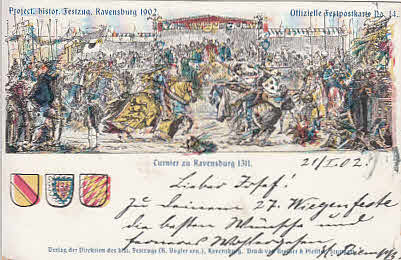 Project. histor. Festzug, Ravensburg 1902. Offizielle Festpostkarte No. 14.
Turnier zu Ravensburg 1311.
21/I.02.
Lieber Josef!
Zu deinem 27. Wiegenfeste
die besten Wünsche und
Verlag der Direktion des hist. Festzugs (R. Vogler sen.), Ravensburg. Druck von